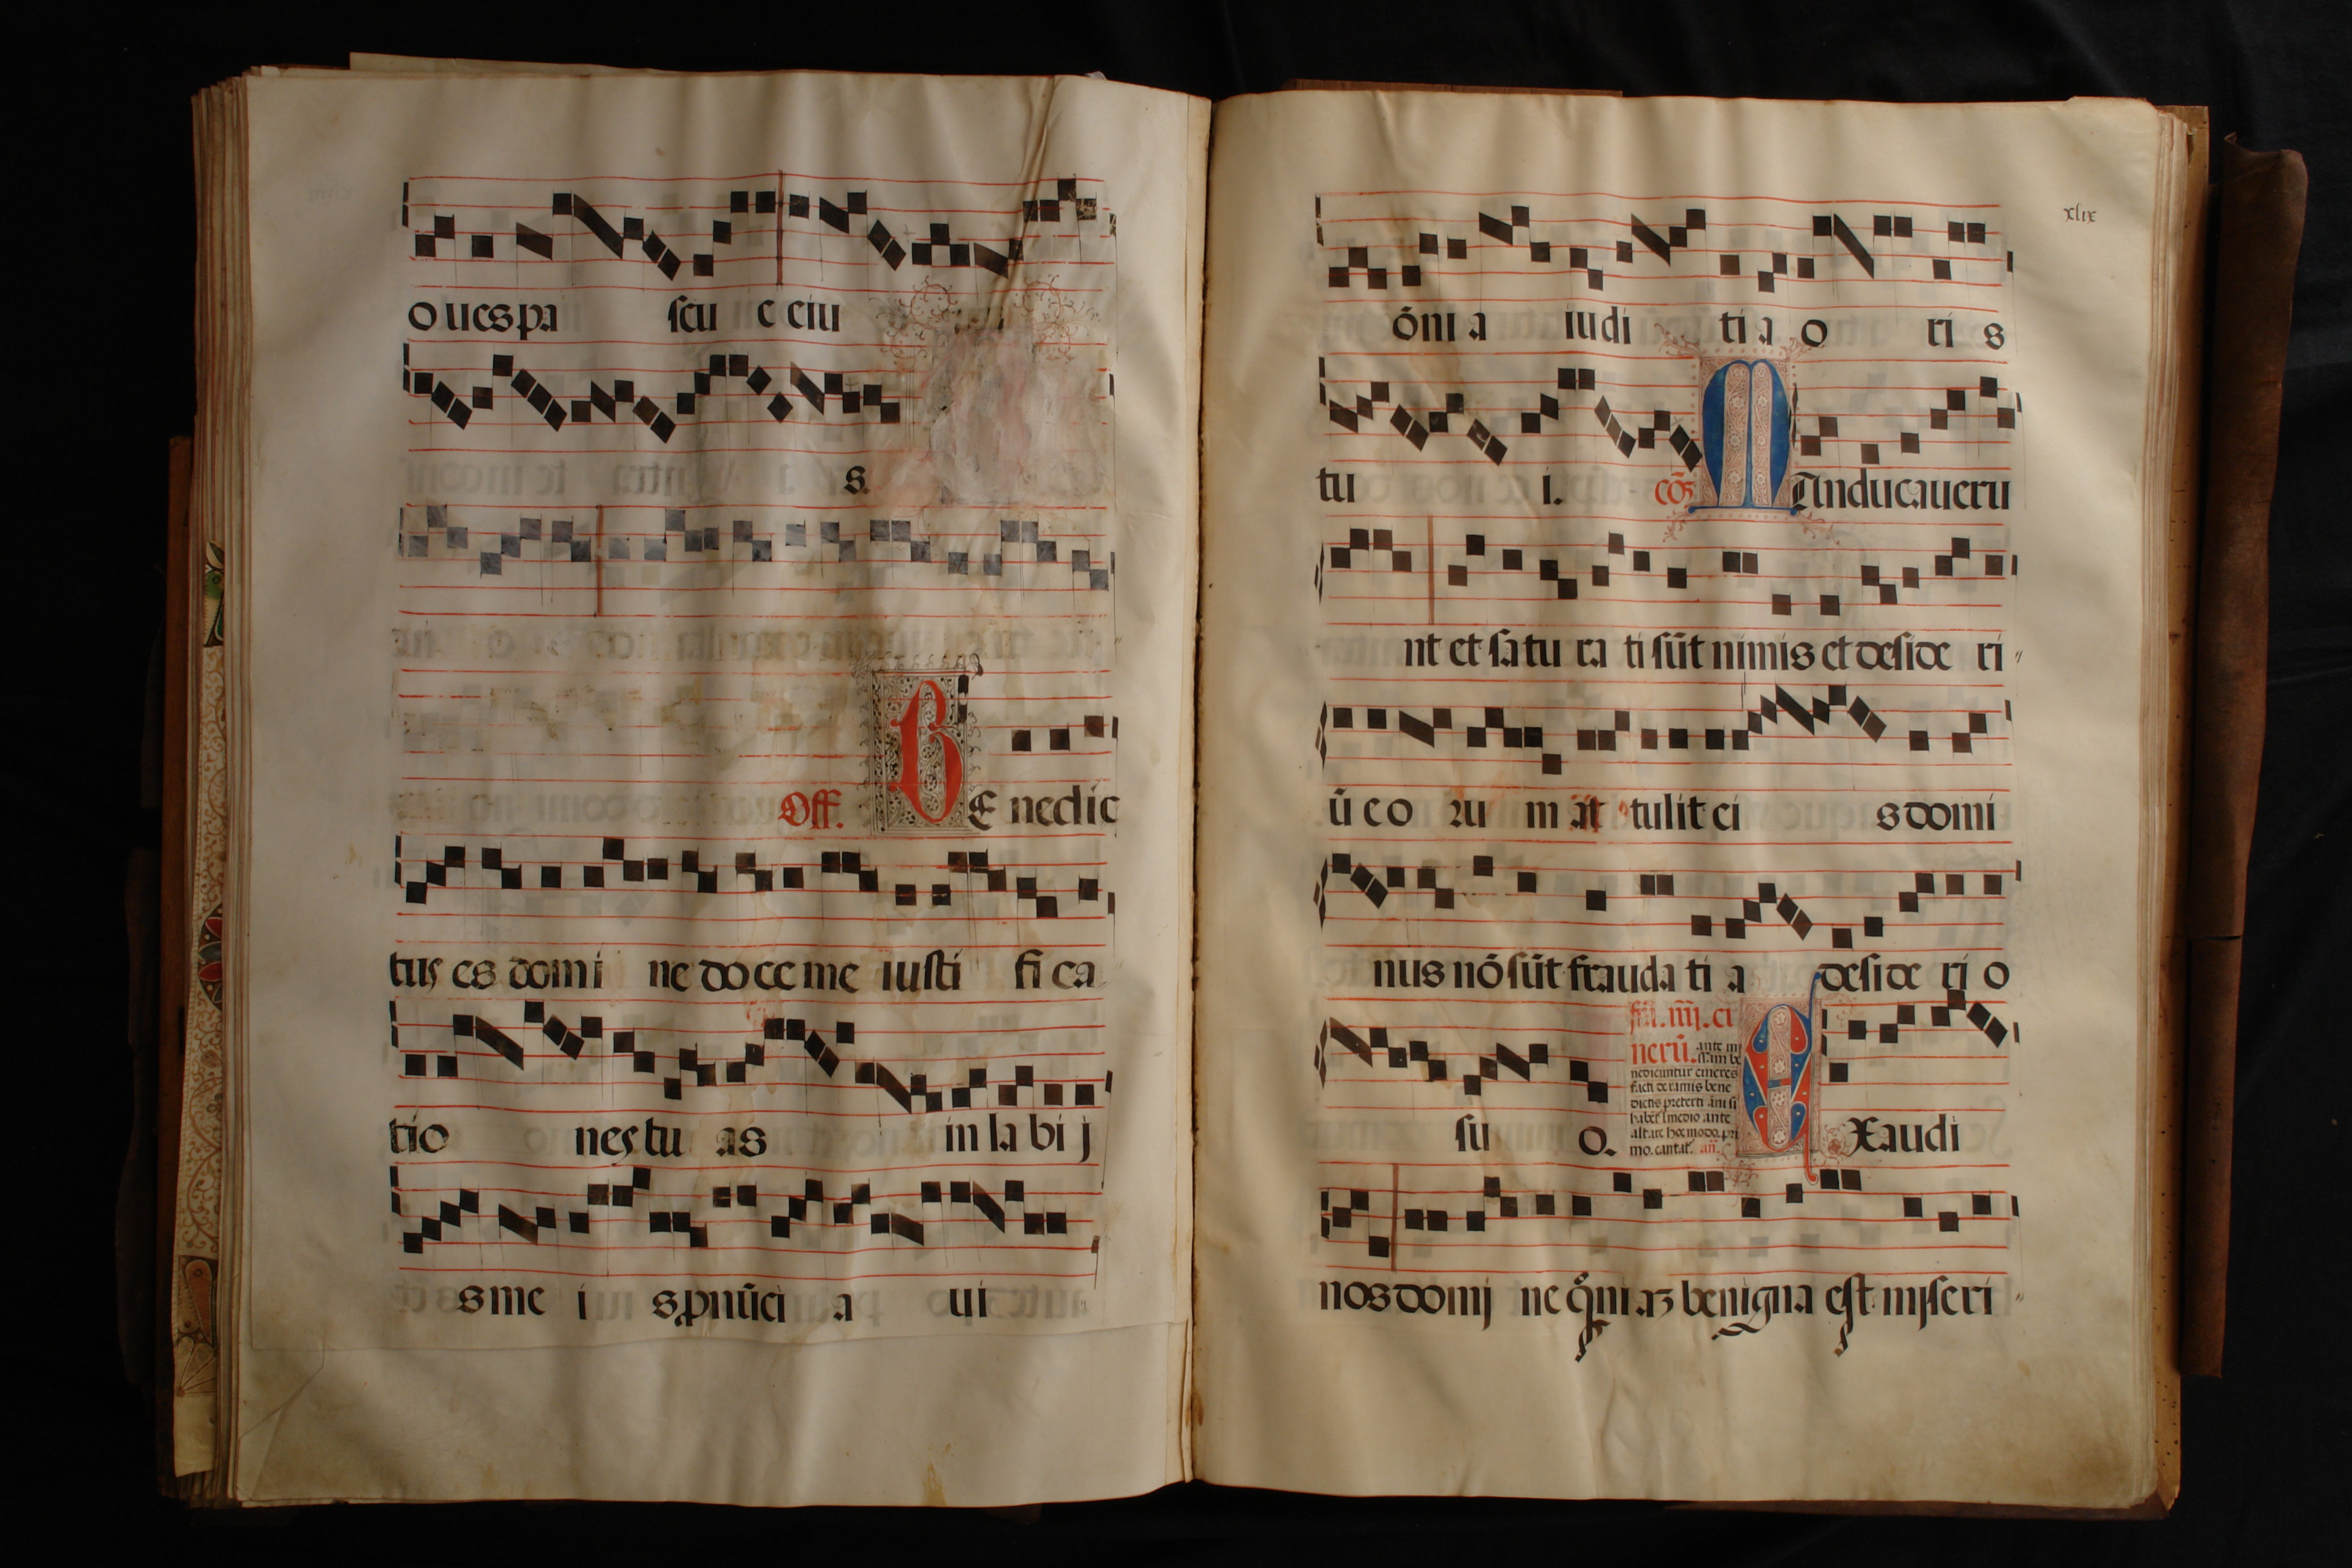 oues pa scu e eiu
s.
Off. BE nedic
tus es domi ne do ce me iusti fi ca
tio nes tu as in la bi j
s me i s pnūci a ui
xlix
ōni a iudi ti a o ri s
tu i. cōo MAnducaueru
nt et satu ra ti sūt nimis et deside ri
ū eo ru m at tulit ei s domi
nus nō sūt frauda ti a deside ri o
su o.
fr̄a. iiij. ci
nerū. ante mi
ssam be
nedicuntur cineres
facti de ramis bene
dictis preteriti āni si
habēt ī medio ante
altare hoc modo. pri
mo. cantat. añ.
EXaudi
nos domi ne qm̄ az benigna est miseri